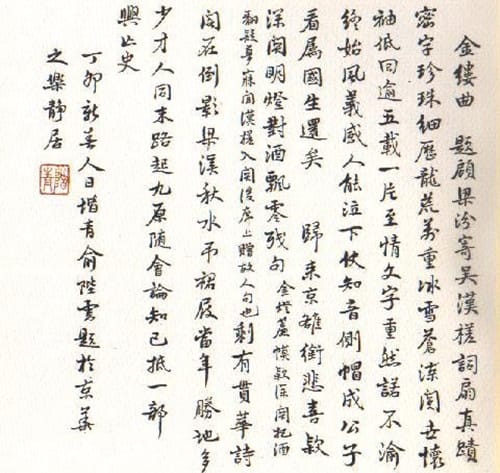 金縷曲　題顧梁汾寄吳漢槎詞扇真蹟
密字珍珠細歷龍荒萬重冰雪蒼涼關世懷
袖低回逾五載一片至情文字重然諾不渝
終始風義感人能泣下使知音側帽成公子
看屬國生還矣　歸來京雒銜悲喜款
深關明燈對酒飄零殘句金燈簾幙款深關把酒
翻疑夢寐間漢槎入關後席上贈故人句也剩有貫華詩
閣在倒影梁溪秋水弔裙屐當年勝地多
少才人同末路起九原隨會論知己抵一部
興亡史
丁卯新春人日堦青俞陛雲題於京華
之樂靜居